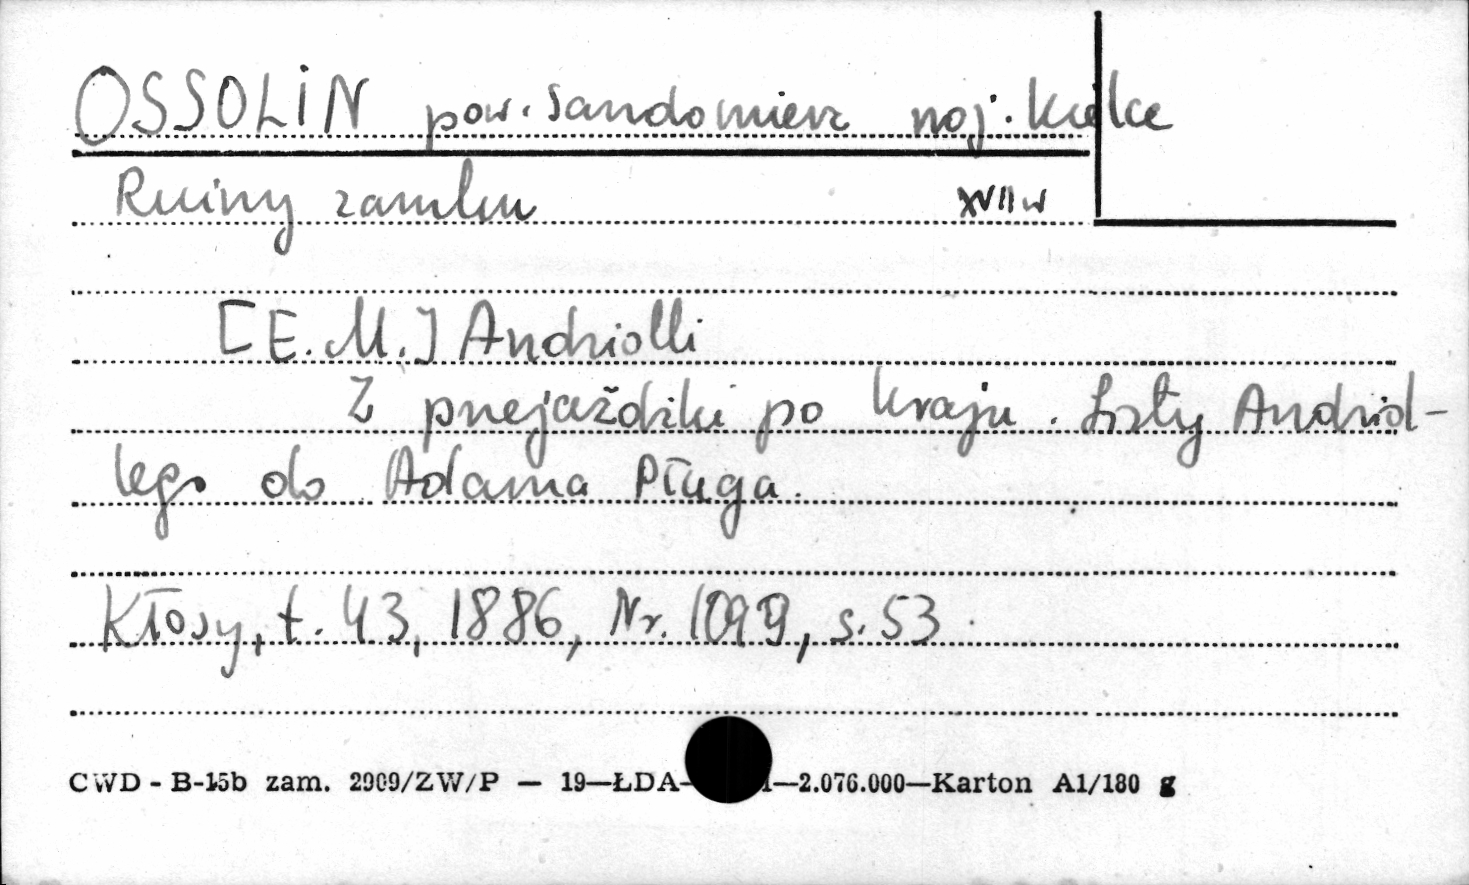 OSSOLIN pow. Sandomierz woj. Kielce
Ruiny zamku XVII w
[E. M.] Andriolli
Z przejażdżki po kraju. Listy Andriol-
lego do Adama Pługa.
Kłosy, t. 43, 1886, Nr. 1099, s. 53.
CWD - B-15b zam. 2909/ZW/P — 19—ŁDA- 1—2.076.000—Karton A1/180 g